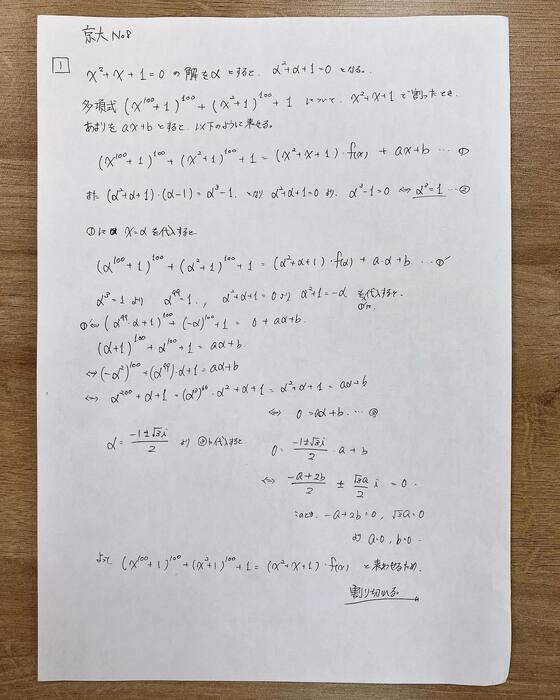 京大 No8
1
x²+x+1=0 の解をαとすると、α²+α+1=0 となる。
多項式 (x¹⁰⁰+1)¹⁰⁰+(x²+1)¹⁰⁰+1 について、x²+x+1で割ったとき、
あまりを ax+b とすると、以下のように表せる。
(x¹⁰⁰+1)¹⁰⁰+(x²+1)¹⁰⁰+1=(x²+x+1)・f(x)+ax+b … ①
また (α²+α+1)・(α-1)=α³-1. α²+α+1=0 より、α³-1=0 ⇔ α³=1 … ②
①に x=α を代入すると
(α¹⁰⁰+1)¹⁰⁰+(α²+1)¹⁰⁰+1=(α²+α+1)・f(α)+a・α+b. … ①′
α³=1 より α⁹⁹=1., α²+α+1=0より α²+1=-α を代入すると、
①′に
①′⇔(α⁹⁹・α+1)¹⁰⁰+(-α)¹⁰⁰+1=0+aα+b.
(α+1)¹⁰⁰+α¹⁰⁰+1=aα+b.
⇔(-α²)¹⁰⁰+(α⁹⁹)・α+1=aα+b
⇔ α²⁰⁰+α+1=(α³)⁶⁶・α²+α+1=α²+α+1=aα+b
⇔ 0=aα+b. … ③
α=(-1±√3i)/2 より ③に代入すると 0=(-1±√3i)/2・a+b
⇔ (-a+2b)/2 ± (√3a/2)i=0.
このとき、-a+2b=0, √3a=0
より a=0, b=0.
よって (x¹⁰⁰+1)¹⁰⁰+(x²+1)¹⁰⁰+1=(x²+x+1)・f(x) と表わせるため、
割り切れる